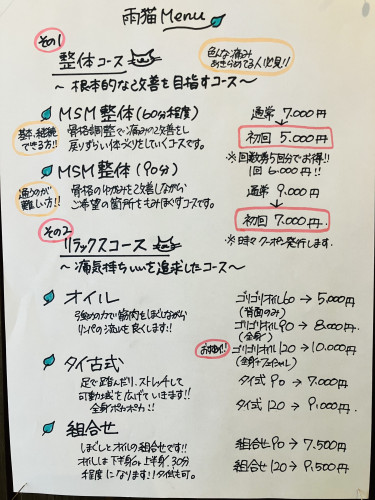 雨猫Menu
その1
整体コース
色んな痛み
あきらめてる人必見!!
～根本的な改善を目指すコース～
MSM整体(60分程度)
基本、継続
できる方!!
骨格調整で痛みの改善をし
戻りずらい体づくりをしていくコースです。
通常 7.000円
初回 5.000円
※回数券5回分でお得!!
1回6.000円!!
MSM整体(90分)
通うのが
難しい方!!
骨格のゆがみを改善しながら
ご希望の箇所をもみほぐすコースです。
通常 9.000円
初回 7.000円.
※日時々クーポン発行します.
その2
リラックスコース
～痛気持ちいいを追求したコース～
オイル
強めの力で筋肉をほぐしながら
リンパの流れを良くします!!
ゴリゴリオイル60→5.000円
(背面のみ)
ゴリゴリオイル90→8.000円
(全身)
お得!!
ゴリゴリオイル120→10.000円
(全身+フェイシャル)
タイ古式
足で踏んだり、ストレッチして
可動域を広げていきます!!
全身ポカポカ!!
タイ式 90→7.000円
タイ式 120→9.000円
組合せ
ほぐしとオイルの組合せです!!
オイルは下半身or上半身、30分
程度になります!!タイ式も可。
組合せ90→7.500円
組合せ120→9.500円